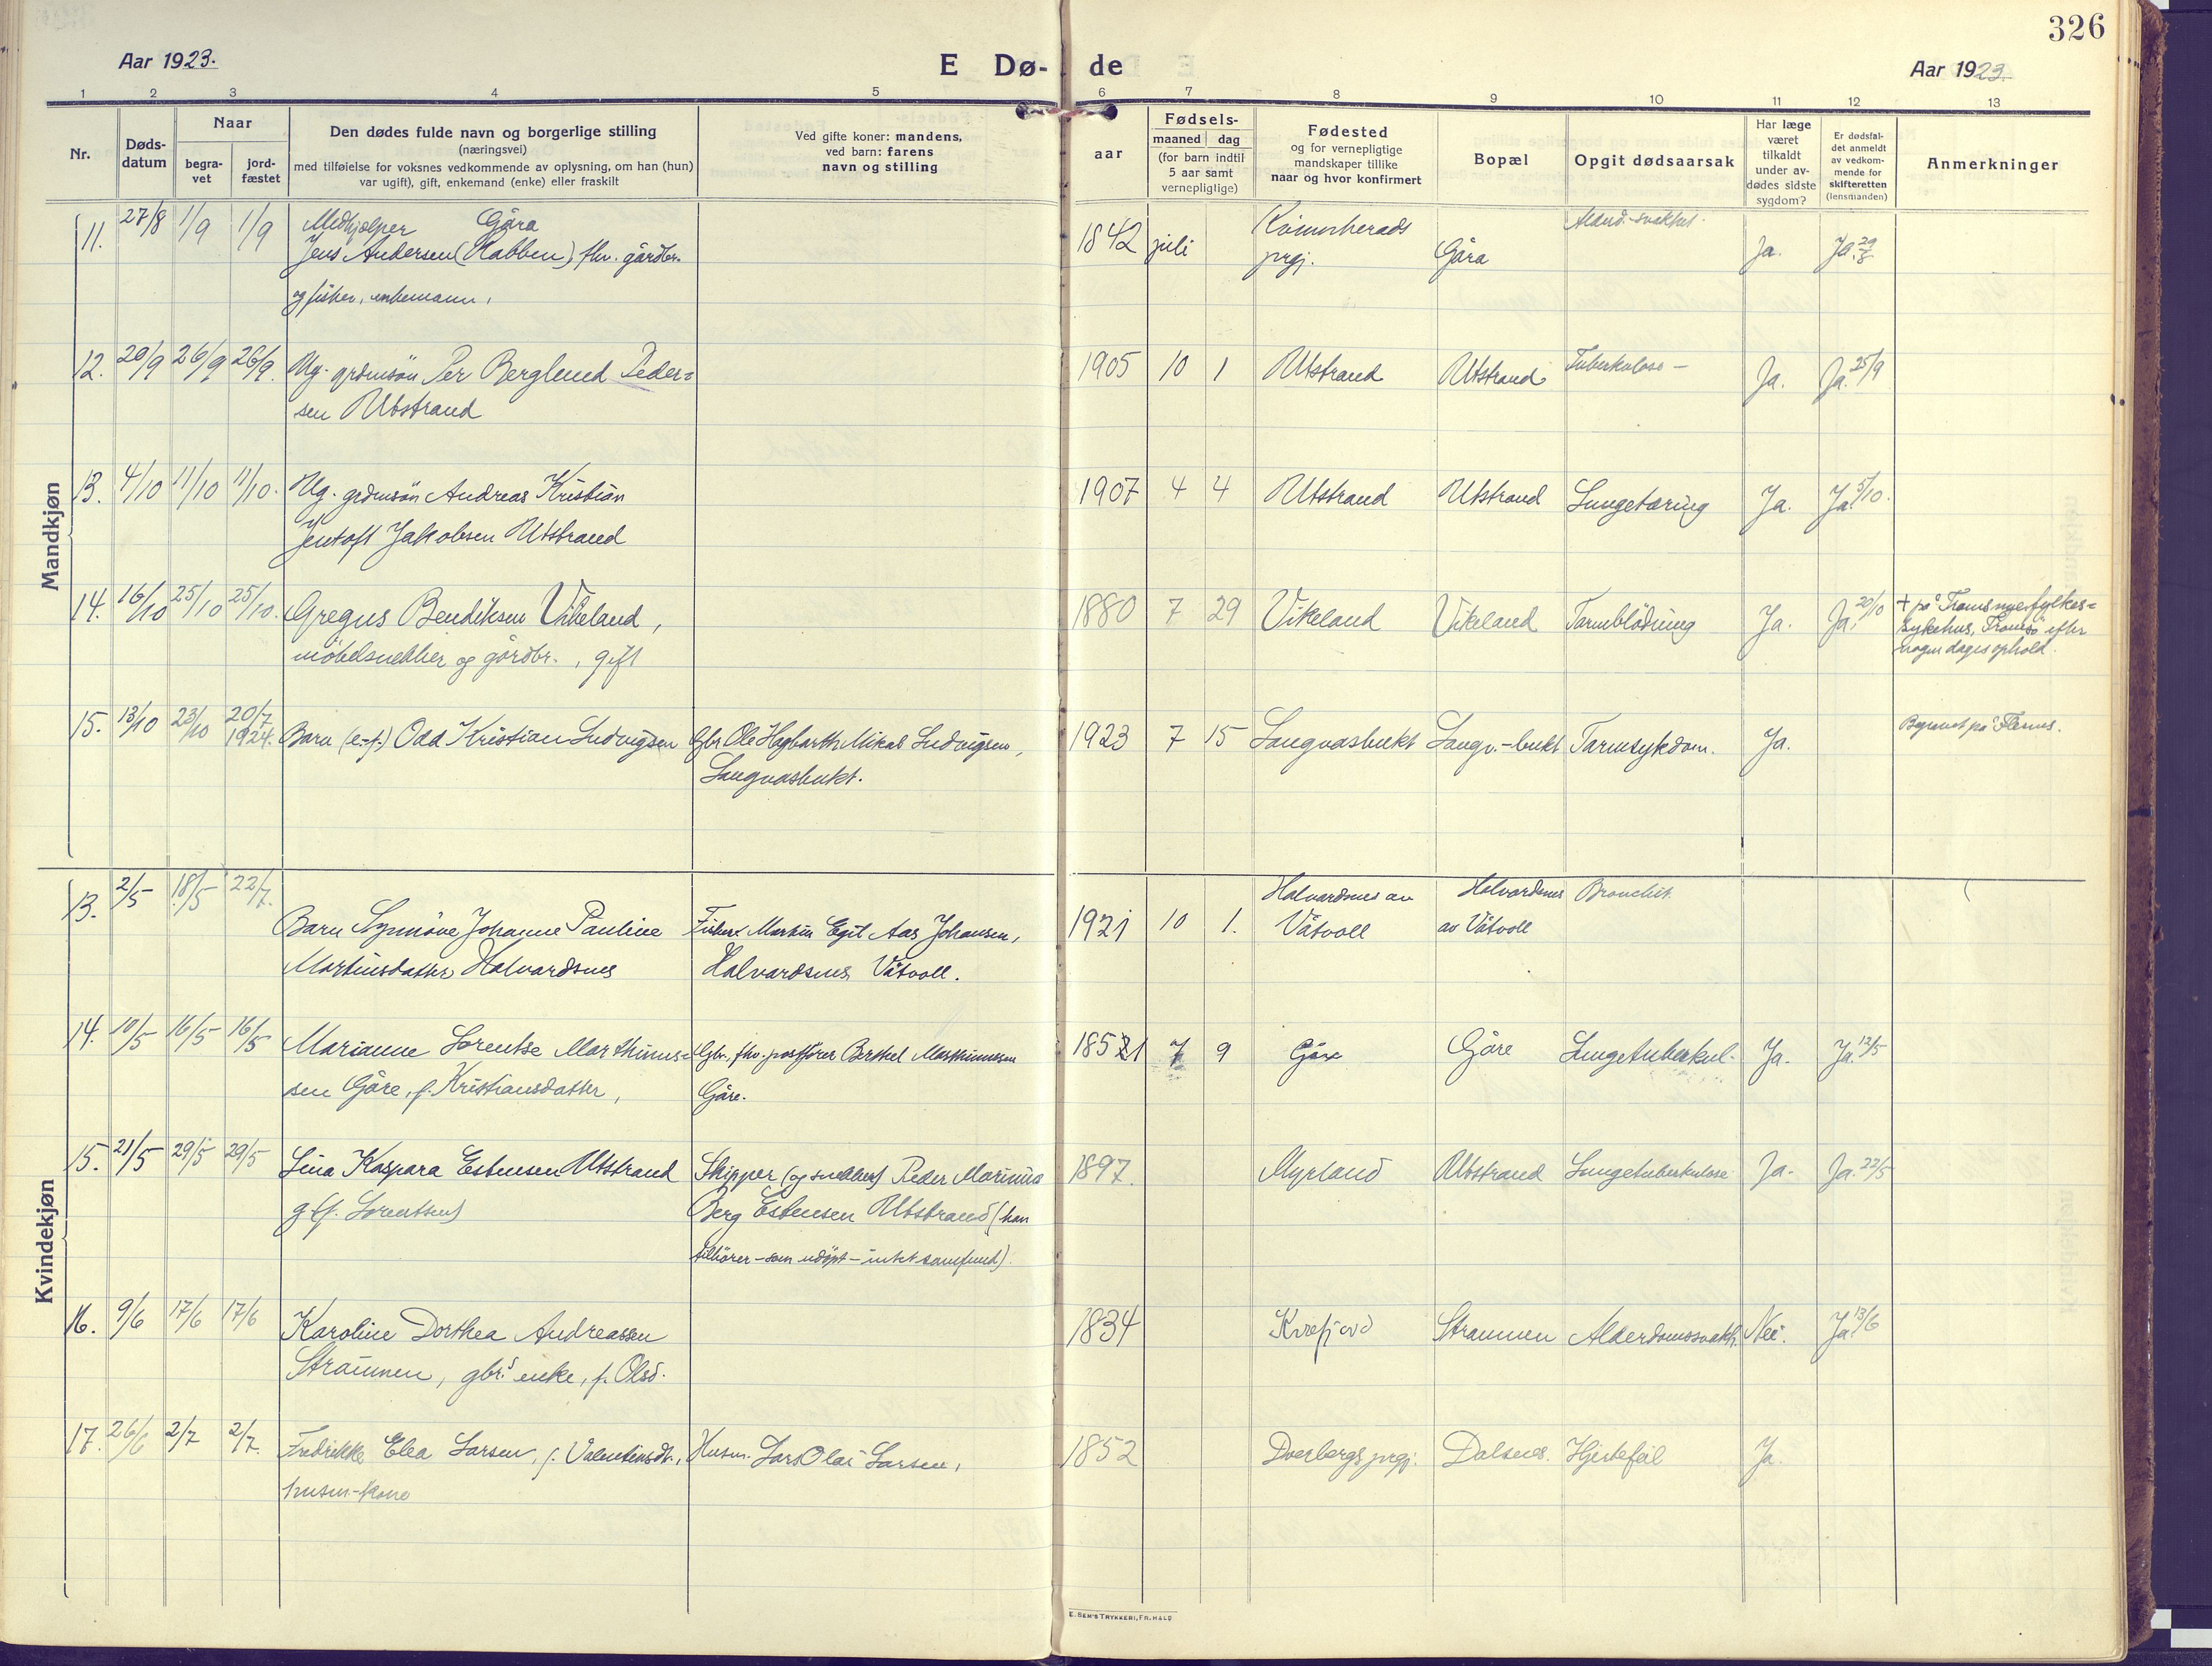 326
Aar 1923.
E Dø-de
Aar 1923.
1 2 3 4 5 6 7 8 9 10 11 12 13
Nr.
Døds-
datum
Naar
begra-
vet
jord-
fæstet
Den dødes fulde navn og borgerlige stilling
(næringsvei)
med tilføielse for voksnes vedkommende av oplysning, om han (hun)
var ugift), gift, enkemand (enke) eller fraskilt
Ved gifte koner: mandens,
ved barn: farens
navn og stilling
Fødsels-
aar
maaned dag
(for barn indtil
5 aar samt
vernepligtige)
Fødested
og for vernepligtige
mandskaper tillike
naar og hvor konfirmert
Bopæl
Opgit dødsaarsak
Har læge
været
tilkaldt
under av-
dødes sidste
sygdom?
Er dødsfal-
det anmeldt
av vedkom-
mende for
skifteretten
(lensmanden)
Anmerkninger
Mandkjøn
11. 27/8 1/9 1/9 Medhjælper Gåra
Jens Andersen (Rabben) fhv. gårdbr.
og fisker, enkemann,
1842 juli Kvinnherads
prgj. Gåra Ja. Ja. 29/8
12. 20/9 26/9 26/9. Ug. grdmsøn Per Berglund Peder=
sen Utstrand
1905 10 1 Utstrand Utstrand Tuberkulose - Ja. Ja. 25/9
13. 4/10 11/10 11/10. Ug. grdmsøn Andreas Kristian
Jentoft Jakobsen Utstrand
1907 4 4 Utstrand Utstrand Lungetæring Ja. Ja. 5/10.
14. 16/10 25/10 25/10. Gregus Bendiksen Vikeland,
møbelsnekker og gårdbr., gift
1880 7 29 Vikeland Vikeland Tarmblødning Ja. Ja. 20/10
+ på Troms nye fylkes=
sykehus, Tromsø efter
nogen dages ophold.
15. 13/10 23/10 20/7
1924. Barn (e-f.) Odd Kristian Ludvigsen Gbr Ole Hagbarth Mikal Ludvigsen,
Langvasbukt.
1923 7 15 Langvasbukt Langv.-bukt Tarmsykdom. Ja. Begravet på Flesnes.
Kvindekjøn
13. 2/5 18/5 22/7.
Barn Synnøve Johanne Pauline
Martinsdatter Halvardsnes
Fisker Martin Egil Aas Johansen,
Halvardsnes Våtvoll.
1921 10 1. Halvardsnes av
Våtvoll
Halvardsnes
av Våtvoll
Bronchit.
14. 10/5 16/5 16/5 Marianne Lorentse Marthinus=
sen Gåre, f. Kristiansdatter,
Gbr., fhv. postfører Berthel Marthinussen
Gåre.
1851 7 9 Gåre Gåre Lungetuberkul. Ja. Ja. 12/5
15. 21/5 29/5 29/5 Lina Kaspara Estensen Utstrand
g. (f. Lorentsen)
Skipper (og snekker) Peder Marinus
Berg Estensen Utstrand (han
tilhører - som udøpt - intet samfund).
1897. Myrland Utstrand Lungetuberkulose Ja. Ja. 22/5
16. 9/6 17/6 17/6 Karoline Dorthea Andreassen
Straumen, gbr.s enke, f. Olsd.
1834 Kvæfjord Straumen Alderdomssvakh. Nei. Ja. 13/6
17. 26/6 2/7 2/7. Fredrikke Elea Larsen, f. Valentinsdt.,
husm-kone
Husm. Lars Olai Larsen,
1852 Dverbergs prgj. Dalsnes. Hjertefeil Ja.
E. SEM'S TRYKKERI, FR.HALD